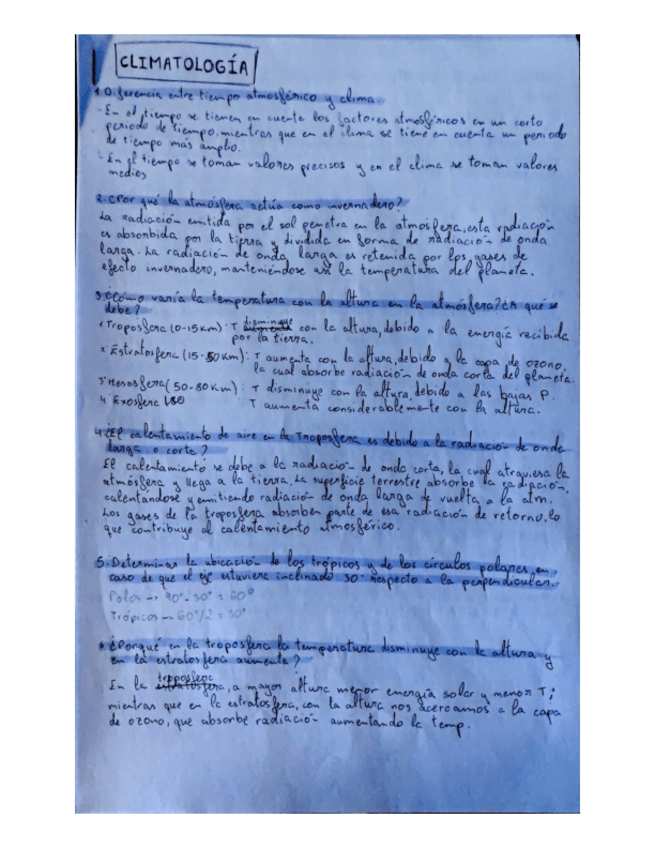 CLIMATOLOGÍA
1. Diferencia entre tiempo atmosférico y clima
- En el tiempo se tienen en cuenta los factores atmosféricos en un corto
periodo de tiempo, mientras que en el clima se tiene en cuenta un periodo
de tiempo más amplio.
- En el tiempo se toman valores precisos y en el clima se toman valores
medios
2. ¿Por qué la atmósfera actúa como invernadero?
La radiación emitida por el sol penetra en la atmósfera, esta radiación
es absorbida por la tierra y dividida en forma de radiación de onda
larga. La radiación de onda larga es retenida por los gases de
efecto invernadero, manteniéndose así la temperatura del planeta.
3. ¿Cómo varía la temperatura con la altura en la atmósfera? ¿A qué se
debe?
1 Troposfera (0-15km): T disminuye con la altura, debido a la energía recibida
por la tierra.
2 Estratosfera (15-50km): T aumenta con la altura, debido a la capa de ozono,
la cual absorbe radiación de onda corta del planeta.
3 Mesosfera (50-80km) T disminuye con la altura debido a las bajas P.
4 Exosfera T aumenta considerablemente con la altura.
4. ¿El calentamiento de aire en la Troposfera es debido a la radiación de onda
larga o corta?
El calentamiento se debe a la radiación de onda corta, la cual atraviesa la
atmósfera y llega a la tierra. La superficie terrestre absorbe la radiación,
calentandose y emitiendo radiación de onda larga de vuelta a la atm.
Los gases de la troposfera absorben parte de esa radiación de retorno, lo
que contribuye al calentamiento atmosférico.
5. Determinar la ubicación de los trópicos y de los círculos polares, en
caso de que el eje estuviera inclinado 30° respecto a la perpendicular.
Polos → 90° - 30° = 60°
Trópicos → 60°/2 = 30°
¿Porqué en la troposfera la temperatura disminuye con la altura y
en la estratosfera aumenta?
En la troposfera, a mayor altura menor energía solar y menor T;
mientras que en la estratosfera, con la altura nos acercamos a la capa
de ozono, que absorbe radiación aumentando la temp.